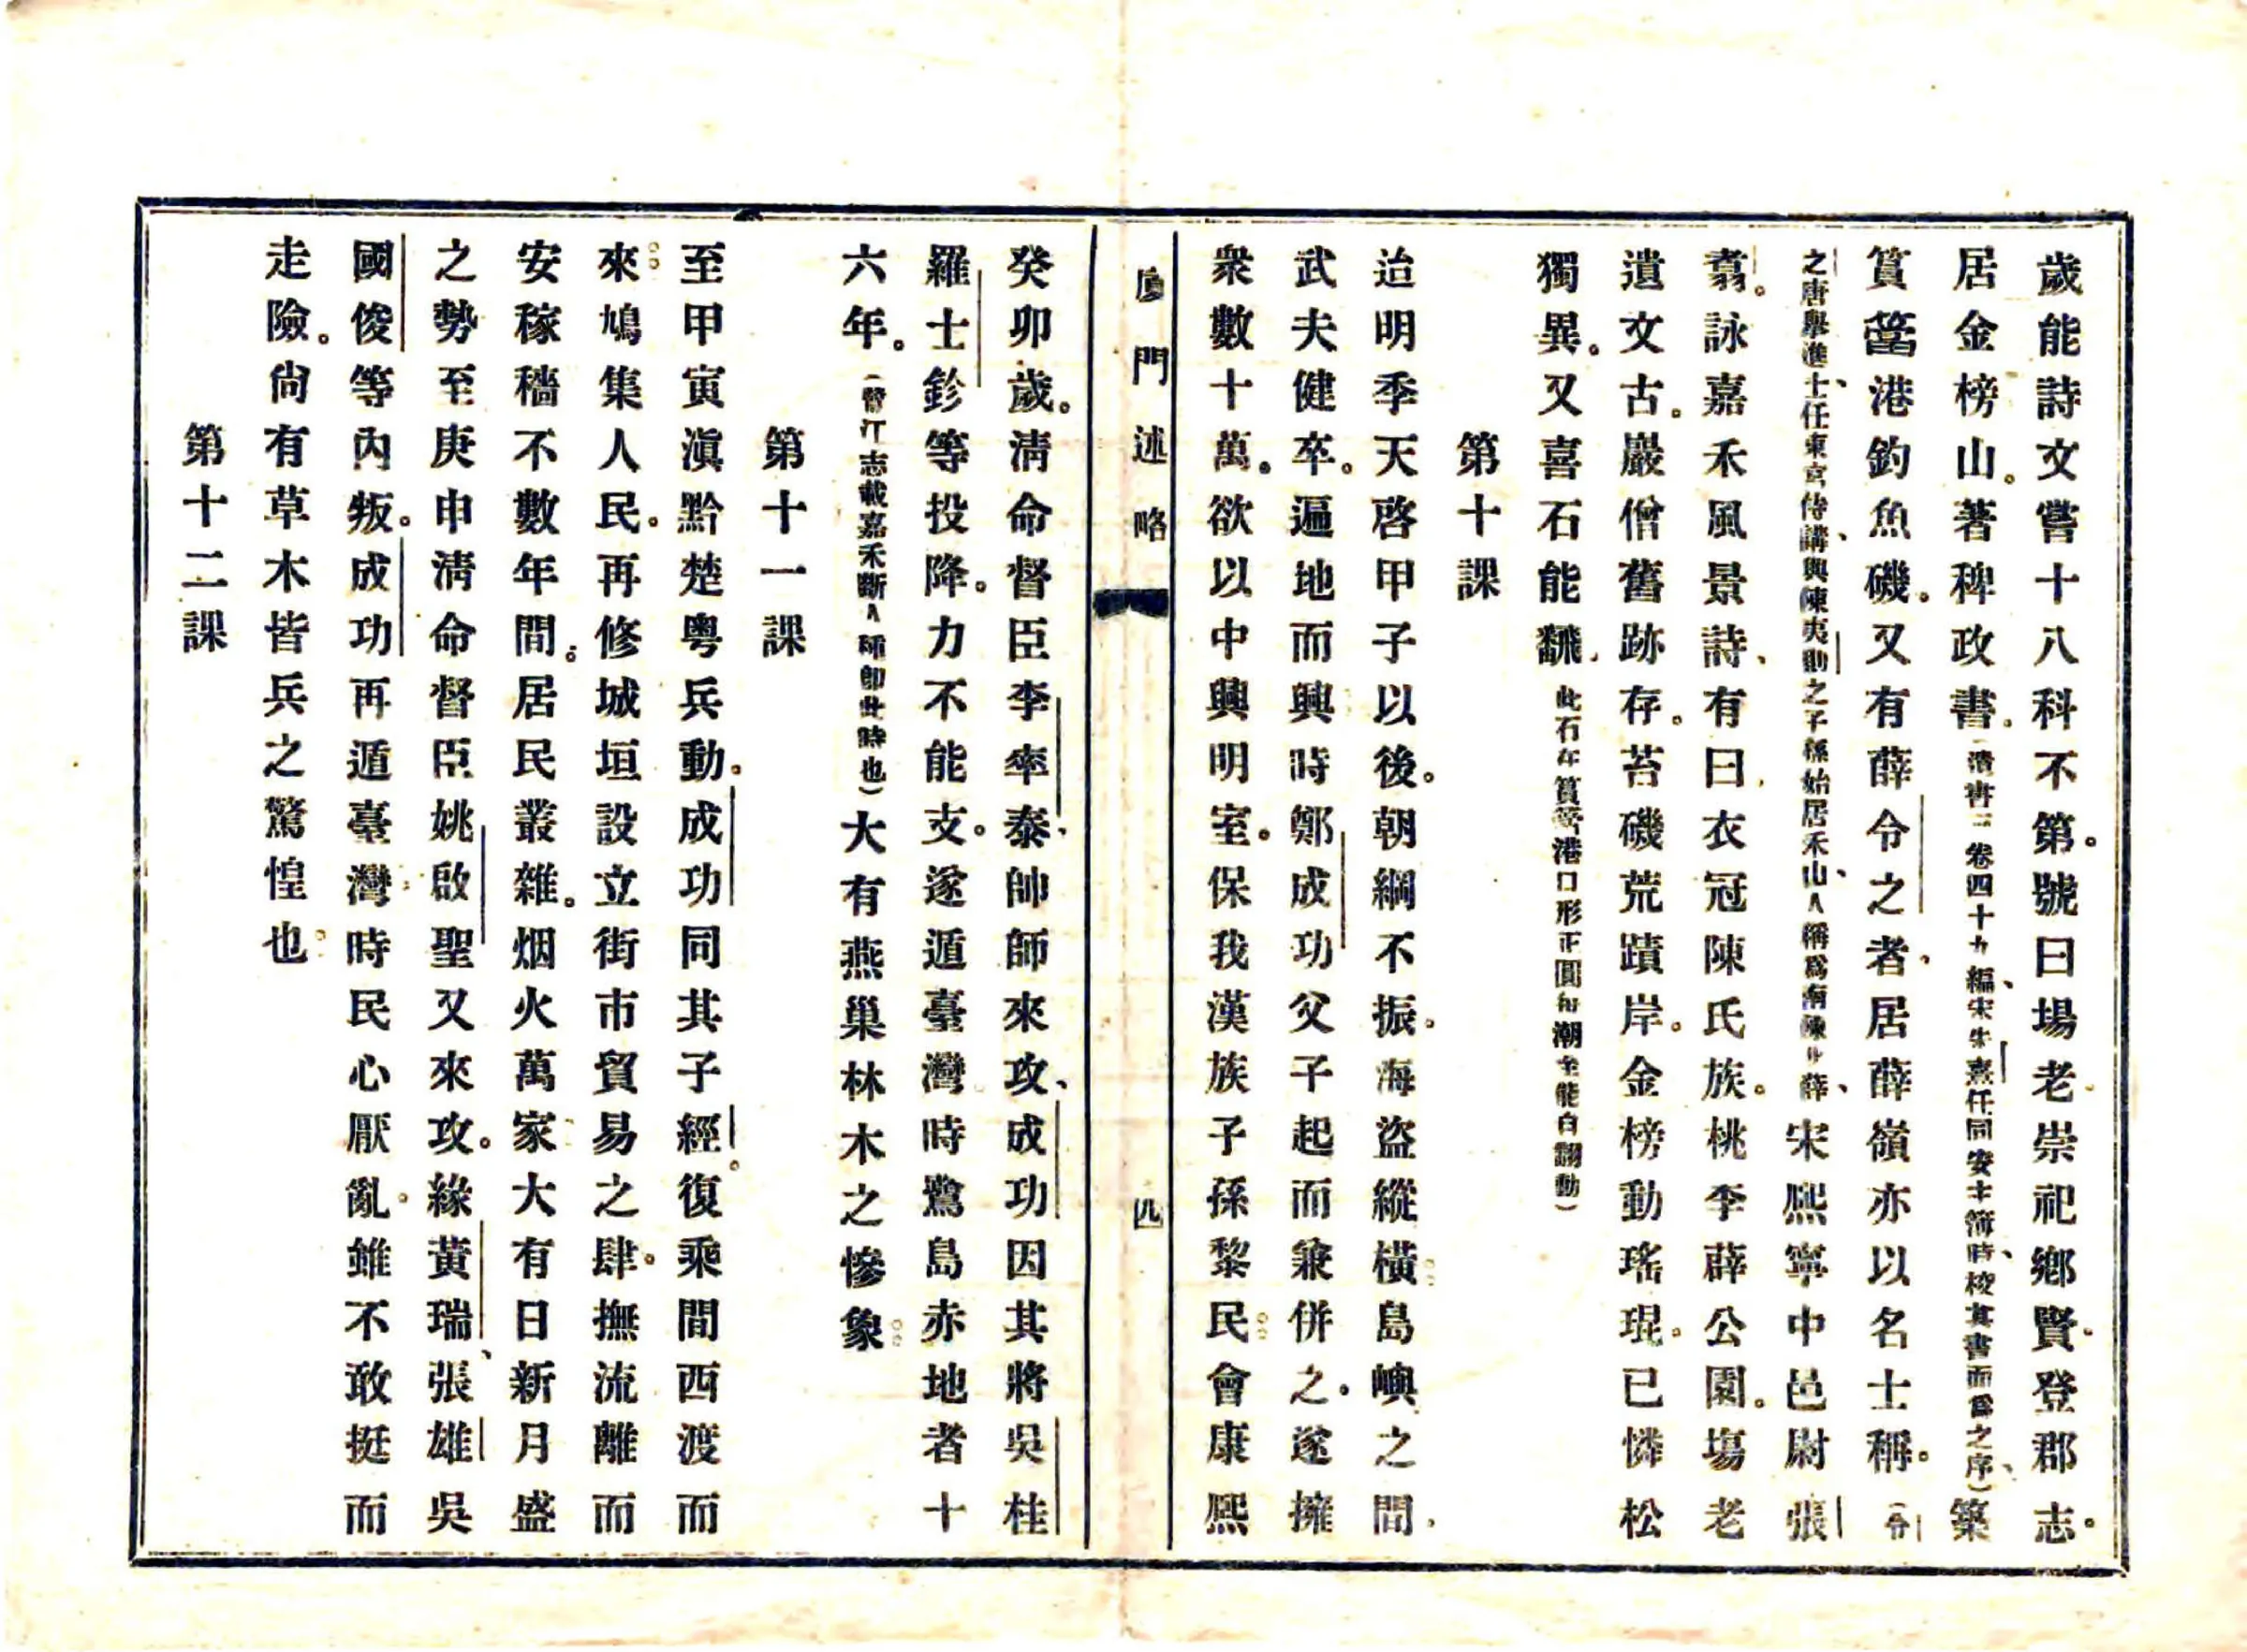 歲能詩文嘗十八科不第。號曰場老。崇祀鄉賢。登郡志。
居金榜山。著稗政書。(清書二卷四十九編、宋朱熹任同安主簿時、校其書而爲之序、)築
篔簹港釣魚磯。又有薛令之者、居薛嶺亦以名士稱。(令
之唐舉進士、任東宮侍講、與陳夷則之子孫始居禾山、人稱爲南陳北薛、宋熙寧中邑尉張
翥。詠嘉禾風景詩、有曰、衣冠陳氏族。桃李薛公園。塲老
遺文古。巖僧舊跡存。苔磯荒蹟岸。金榜動瑤琨。已憐松
獨異。又喜石能飜、此石在篔簹港口形正圓每潮至能自翻動)
第十課
迨明季天啓甲子以後。朝綱不振。海盜縱橫。島嶼之間、
武夫健卒。遍地而興時鄭成功父子起而兼併之。遂擁
衆數十萬。欲以中興明室。保我漢族子孫黎民。會康熙
廈門述略 四
癸卯歲。淸命督臣李率泰、帥師來攻、成功因其將吳桂
羅士鉁等投降。力不能支。遂遁臺灣時鷺島赤地者十
六年。(晉江志載嘉禾斷人種卽此時也)大有燕巢林木之慘象。
第十一課
至甲寅滇黔楚粵兵動。成功同其子經。復乘間西渡而
來。鳩集人民。再修城垣設立街市貿易之肆。撫流離而
安稼穡不數年間。居民叢雜。烟火萬家。大有日新月盛
之勢至庚申淸命督臣姚啟聖又來攻。緣黃瑞、張雄吳
國俊等內叛。成功再遁臺灣。時民心厭亂。雖不敢挺而
走險。尙有草木皆兵之驚惶也。
第十二課